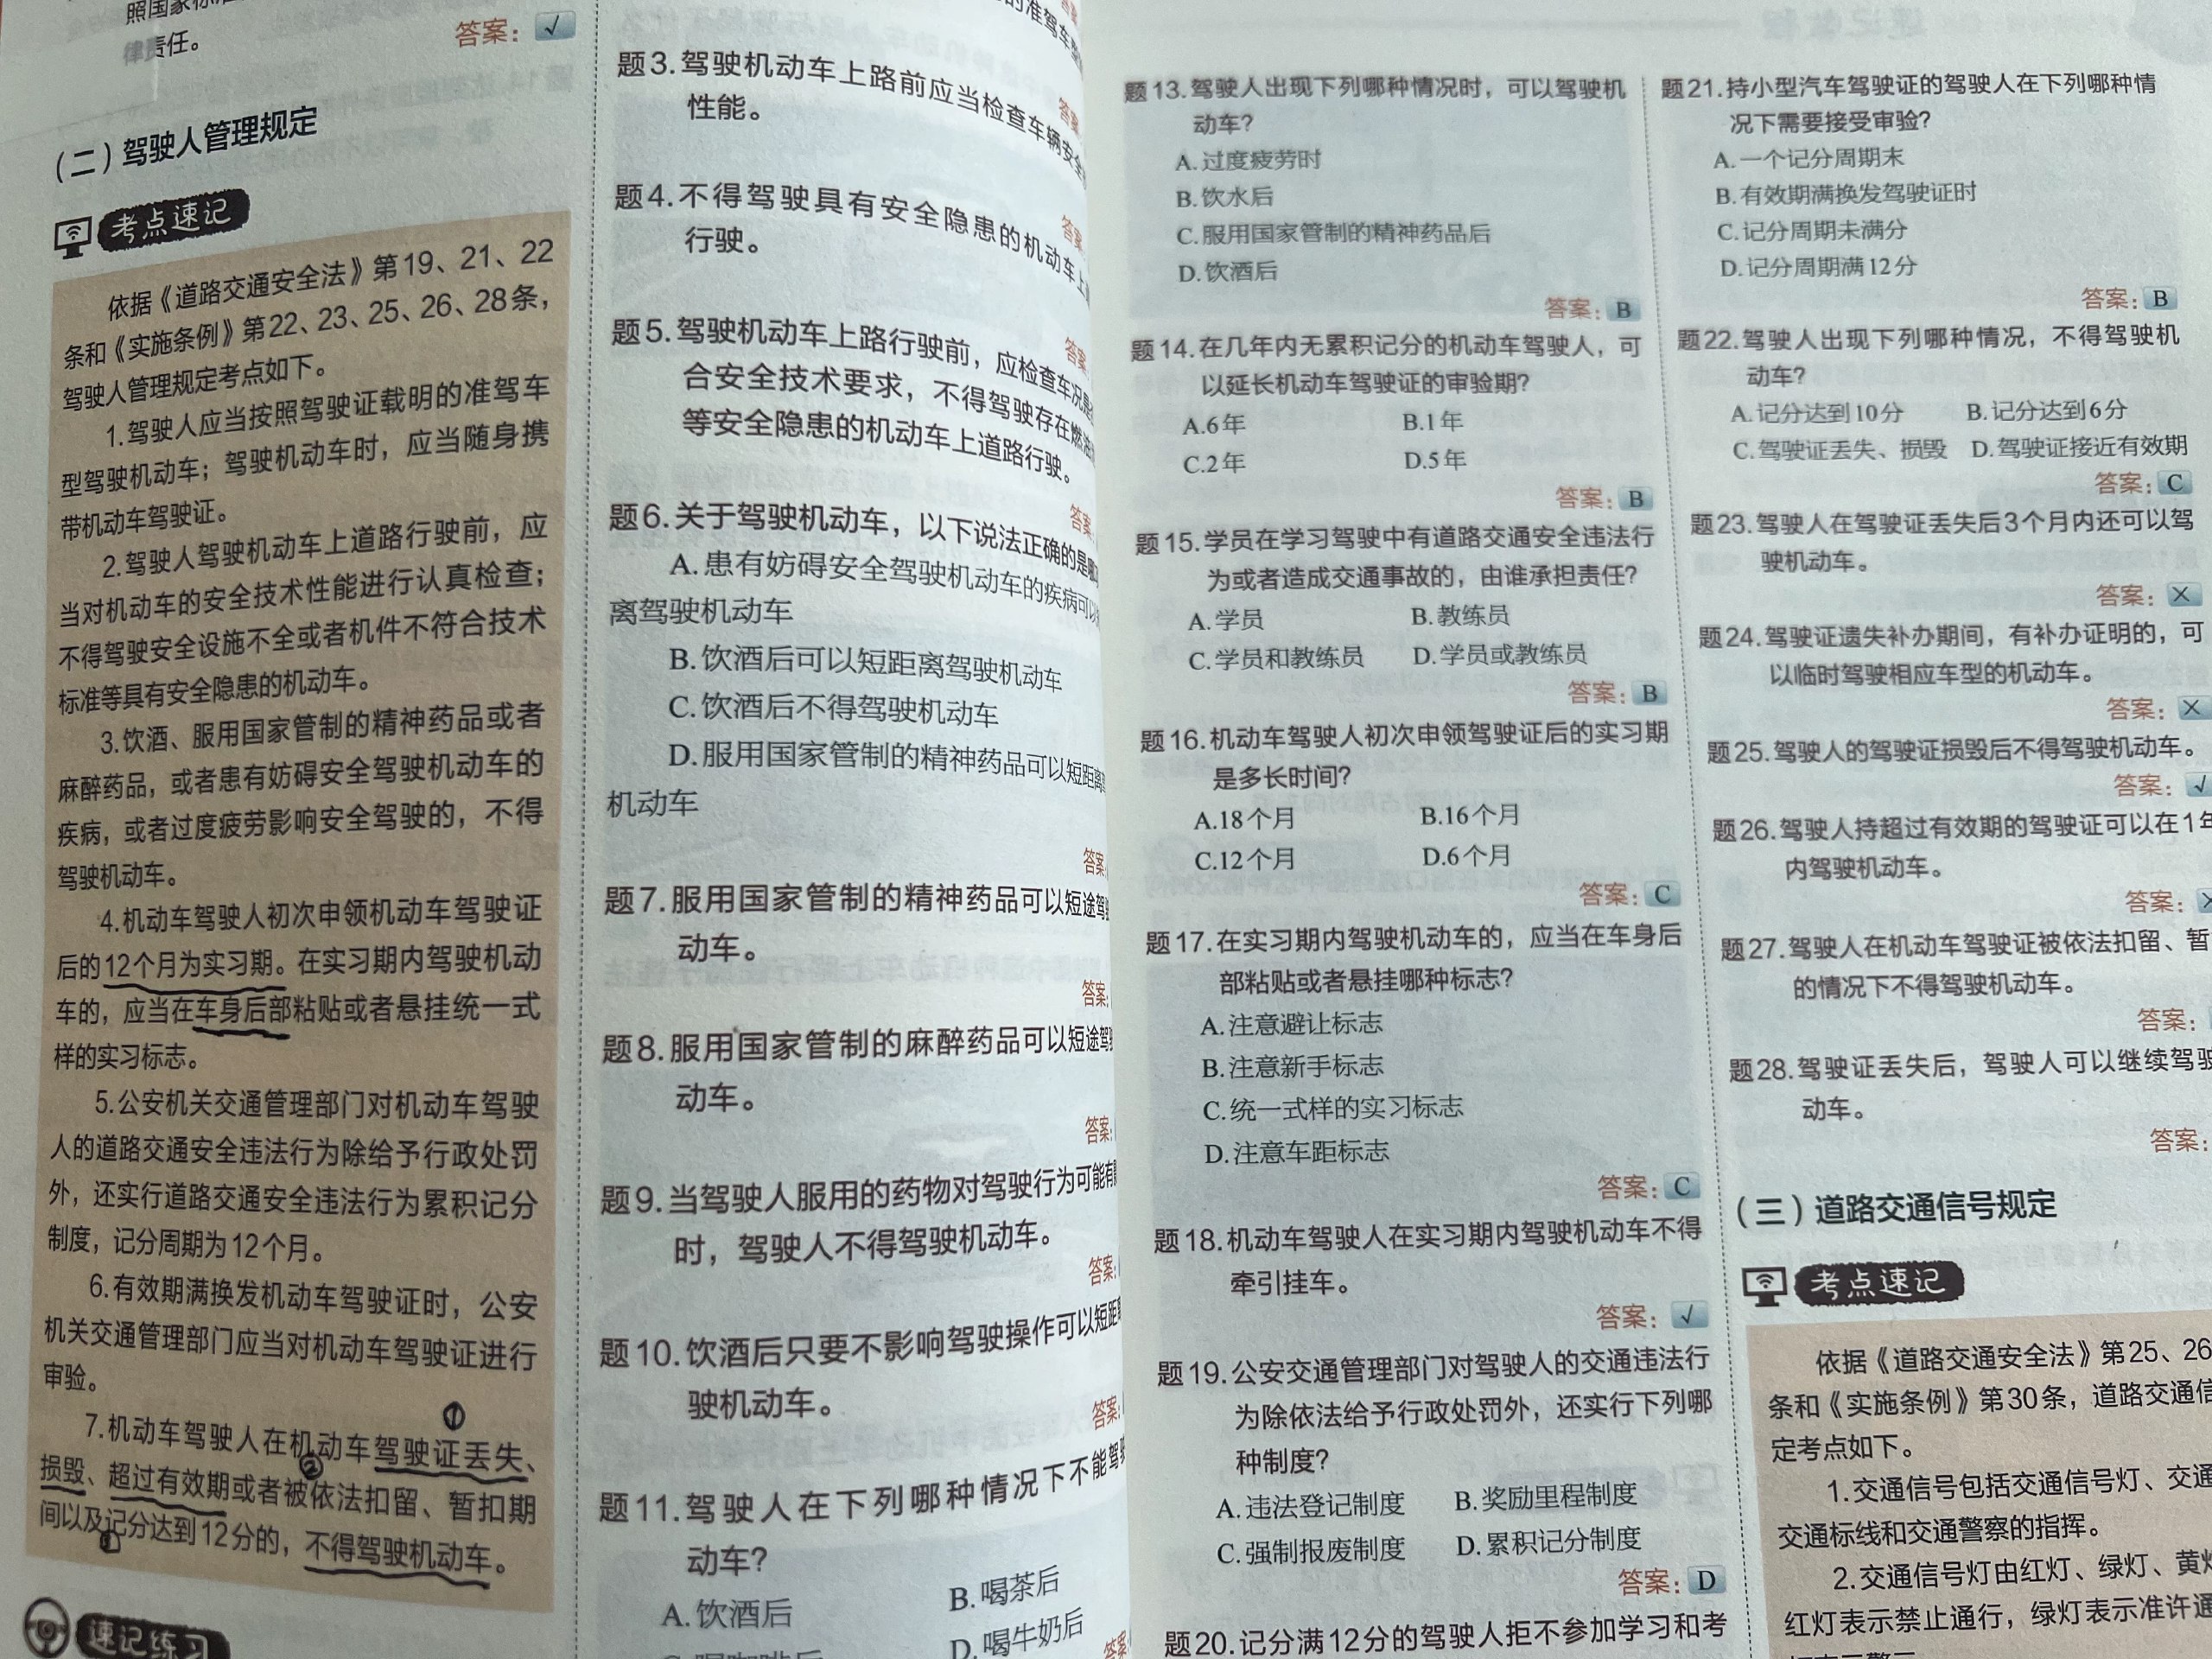 照国家标
律责任。
答案：√
（二）驾驶人管理规定
考点速记
依据《道路交通安全法》第19、21、22
条和《实施条例》第22、23、25、26、28条，
驾驶人管理规定考点如下。
1.驾驶人应当按照驾驶证载明的准驾车
型驾驶机动车；驾驶机动车时，应当随身携
带机动车驾驶证。
2.驾驶人驾驶机动车上道路行驶前，应
当对机动车的安全技术性能进行认真检查；
不得驾驶安全设施不全或者机件不符合技术
标准等具有安全隐患的机动车。
3.饮酒、服用国家管制的精神药品或者
麻醉药品，或者患有妨碍安全驾驶机动车的
疾病，或者过度疲劳影响安全驾驶的，不得
驾驶机动车。
4.机动车驾驶人初次申领机动车驾驶证
后的12个月为实习期。在实习期内驾驶机动
车的，应当在车身后部粘贴或者悬挂统一式
样的实习标志。
5.公安机关交通管理部门对机动车驾驶
人的道路交通安全违法行为除给予行政处罚
外，还实行道路交通安全违法行为累积记分
制度，记分周期为12个月。
6.有效期满换发机动车驾驶证时，公安
机关交通管理部门应当对机动车驾驶证进行
审验。
①
7.机动车驾驶人在机动车驾驶证丢失、
②
损毁、超过有效期或者被依法扣留、暂扣期
间以及记分达到12分的，不得驾驶机动车。
速记练习
的准驾车型
答案
题3.驾驶机动车上路前应当检查车辆安全
性能。
答案
题4.不得驾驶具有安全隐患的机动车上
行驶。
答案
题5.驾驶机动车上路行驶前，应检查车况是
合安全技术要求，不得驾驶存在燃油
等安全隐患的机动车上道路行驶。
答案：
题6.关于驾驶机动车，以下说法正确的是
A.患有妨碍安全驾驶机动车的疾病可以
离驾驶机动车
B.饮酒后可以短距离驾驶机动车
C.饮酒后不得驾驶机动车
D.服用国家管制的精神药品可以短距离
机动车
答案
题7.服用国家管制的精神药品可以短途驾
动车。
答案：
题8.服用国家管制的麻醉药品可以短途驾
动车。
答案：
题9.当驾驶人服用的药物对驾驶行为可能有
时，驾驶人不得驾驶机动车。
答案：
题10.饮酒后只要不影响驾驶操作可以短距
驶机动车。
答案：
题11.驾驶人在下列哪种情况下不能驾驶
动车？
A.饮酒后 B.喝茶后
C.喝咖啡后 D.喝牛奶后
答案
题13.驾驶人出现下列哪种情况时，可以驾驶机
动车？
A.过度疲劳时
B.饮水后
C.服用国家管制的精神药品后
D.饮酒后
答案：B
题14.在几年内无累积记分的机动车驾驶人，可
以延长机动车驾驶证的审验期？
A.6年 B.1年
C.2年 D.5年
答案：B
题15.学员在学习驾驶中有道路交通安全违法行
为或者造成交通事故的，由谁承担责任？
A.学员 B.教练员
C.学员和教练员 D.学员或教练员
答案：B
题16.机动车驾驶人初次申领驾驶证后的实习期
是多长时间？
A.18个月 B.16个月
C.12个月 D.6个月
答案：C
题17.在实习期内驾驶机动车的，应当在车身后
部粘贴或者悬挂哪种标志？
A.注意避让标志
B.注意新手标志
C.统一式样的实习标志
D.注意车距标志
答案：C
题18.机动车驾驶人在实习期内驾驶机动车不得
牵引挂车。
答案：√
题19.公安交通管理部门对驾驶人的交通违法行
为除依法给予行政处罚外，还实行下列哪
种制度？
A.违法登记制度 B.奖励里程制度
C.强制报废制度 D.累积记分制度
答案：D
题20.记分满12分的驾驶人拒不参加学习和考
题21.持小型汽车驾驶证的驾驶人在下列哪种情
况下需要接受审验？
A.一个记分周期末
B.有效期满换发驾驶证时
C.记分周期未满分
D.记分周期满12分
答案：B
题22.驾驶人出现下列哪种情况，不得驾驶机
动车？
A.记分达到10分 B.记分达到6分
C.驾驶证丢失、损毁 D.驾驶证接近有效期
答案：C
题23.驾驶人在驾驶证丢失后3个月内还可以驾
驶机动车。
答案：×
题24.驾驶证遗失补办期间，有补办证明的，可
以临时驾驶相应车型的机动车。
答案：×
题25.驾驶人的驾驶证损毁后不得驾驶机动车。
答案：√
题26.驾驶人持超过有效期的驾驶证可以在1年
内驾驶机动车。
答案：×
题27.驾驶人在机动车驾驶证被依法扣留、暂
的情况下不得驾驶机动车。
答案：
题28.驾驶证丢失后，驾驶人可以继续驾驶
动车。
答案：
（三）道路交通信号规定
考点速记
依据《道路交通安全法》第25、26
条和《实施条例》第30条，道路交通信
定考点如下。
1.交通信号包括交通信号灯、交通
交通标线和交通警察的指挥。
2.交通信号灯由红灯、绿灯、黄灯
红灯表示禁止通行，绿灯表示准许通